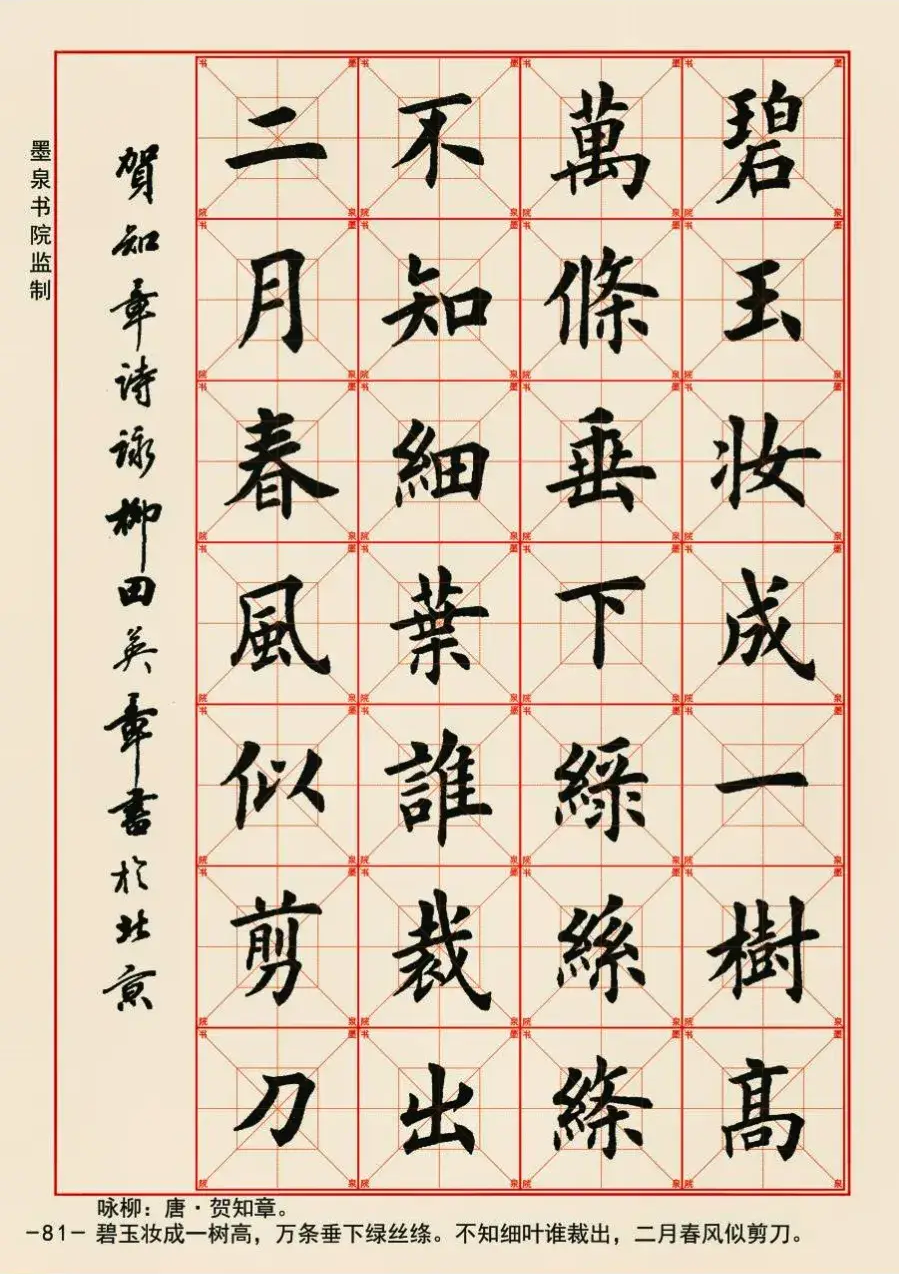 碧玉妝成一樹高
萬條垂下綠絲絛
不知細葉誰裁出
二月春風似剪刀
賀知章诗詠柳田英章書於北京
墨泉书院监制
咏柳：唐·贺知章。
-81- 碧玉妆成一树高，万条垂下绿丝绦。不知细叶谁裁出，二月春风似剪刀。